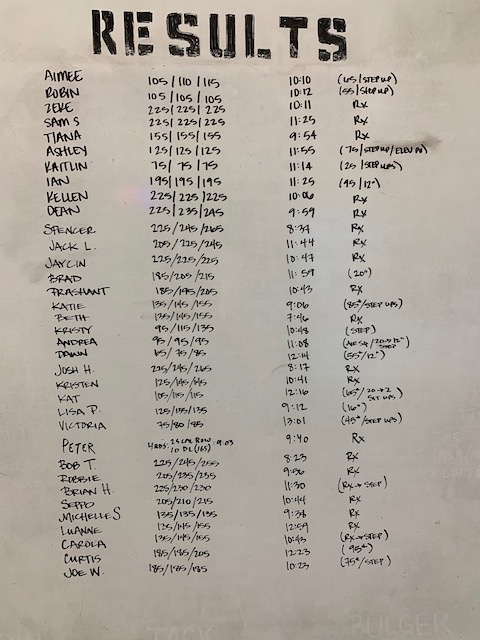 RESULTS
AIMEE 105/110/115 10:10 (65/STEP UP)
ROBIN 105/105/105 10:12 (55/STEP UP)
ZEKE 225/225/225 10:11 Rx
SAM S 225/225/225 11:25 Rx
TIANA 155/155/155 9:54 Rx
ASHLEY 125/125/125 11:55 (75/STEP UP/
KAITLIN 75/75/75 11:14 (25/STEP UPS)
IAN 195/195/195 11:25 (95/12")
KELLEN 225/225/225 10:06 Rx
DEAN 225/235/245 9:59 Rx
SPENCER 225/245/265 8:37 Rx
JACK L. 205/225/245 11:44 Rx
JAYCIN 225/225/225 10:47 Rx
BRAD 185/205/215 11:59 (20")
PRASHANT 185/195/205 10:43 Rx
KATIE 135/145/155 9:06 (85#/STEP UPS)
BETH 135/145/155 7:46 Rx
KRISTY 95/115/135 10:48 (STEP)
ANDREA 95/95/95 11:08
DAWN 65/75/85 12:14 (55#/12")
JOSH H. 225/245/265 8:17 Rx
KRISTEN 125/145/145 10:41 Rx
KAT 105/115/115 12:16 (65#/
STEP UPS)
LISA P. 125/135/135 9:12 (16")
VICTORIA 75/80/85 13:01 (45#/STEP UPS)
PETER 4 RDS: 25 CAL ROW 9:03 9:40 Rx
10 DL (165)
BOB T. 225/245/255 8:23 Rx
ROBBIE 205/235/255 9:56 Rx
BRIAN H. 225/230/230 11:30 (Rx → STEP)
SEPPO 205/210/215 10:44 Rx
MICHELLE S 135/135/135 9:38 Rx
LUANNE 135/145/155 12:59 Rx
CAROLA 135/145/155 10:43 (Rx → STEP)
CURTIS 185/185/205 12:23 (95#)
JOE W. 185/185/185 10:23 (75#/STEP)
BULGER